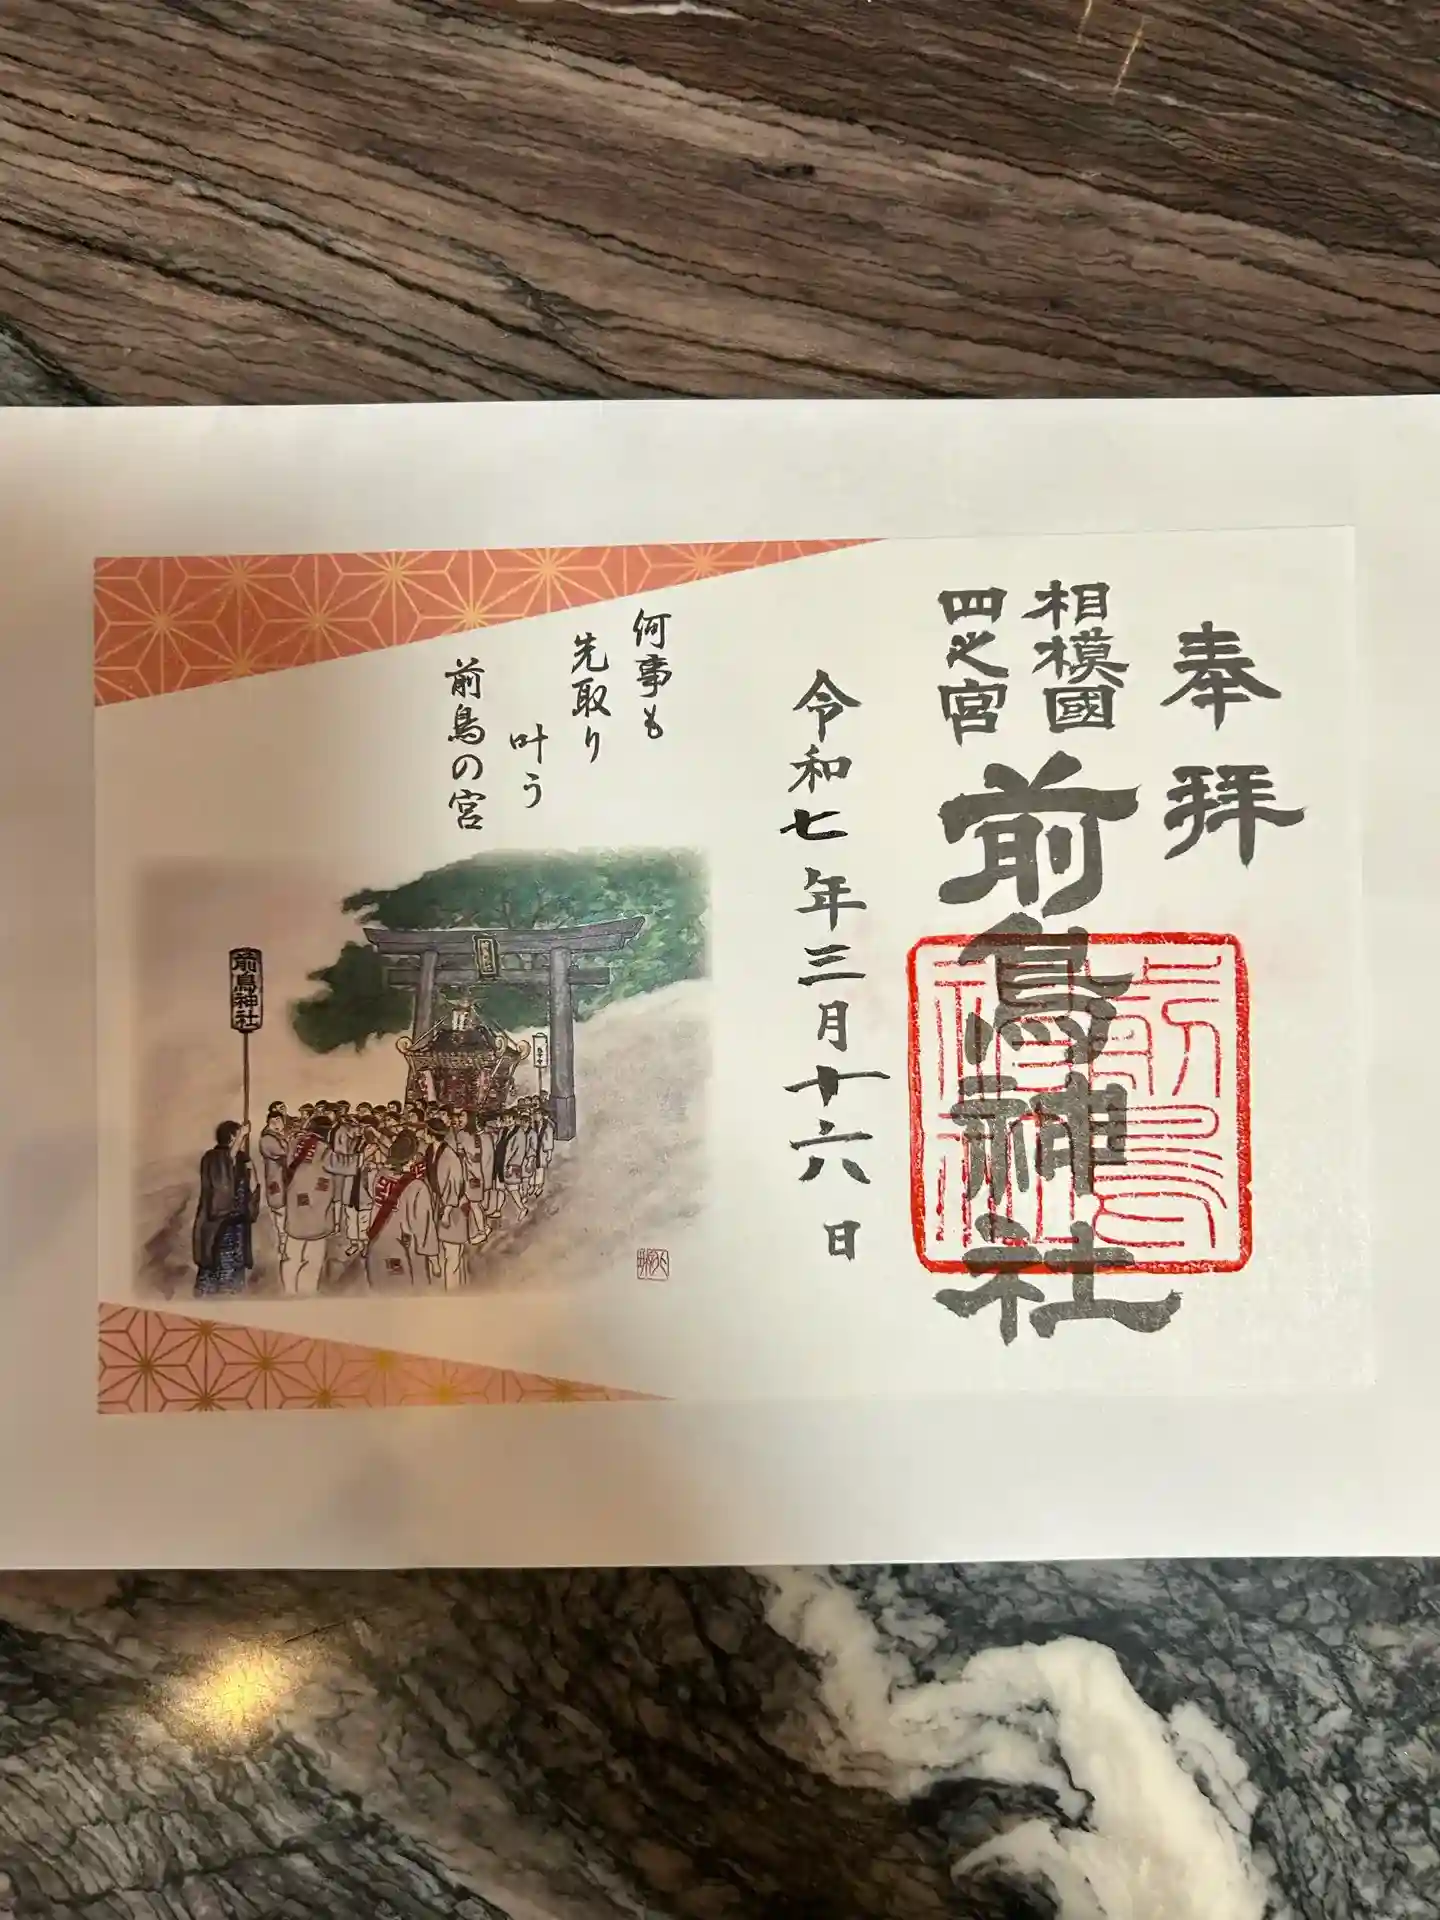 奉拝
相模國
四之宮
前鳥神社
前鳥
神社
令和七年三月十六日
何事も
先取り
叶う
前鳥の宮
前鳥神社